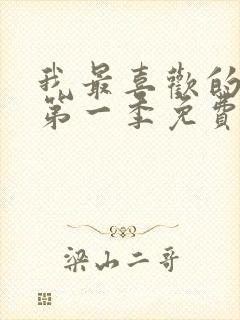 我最喜歡的
第一季免費
梁山二哥